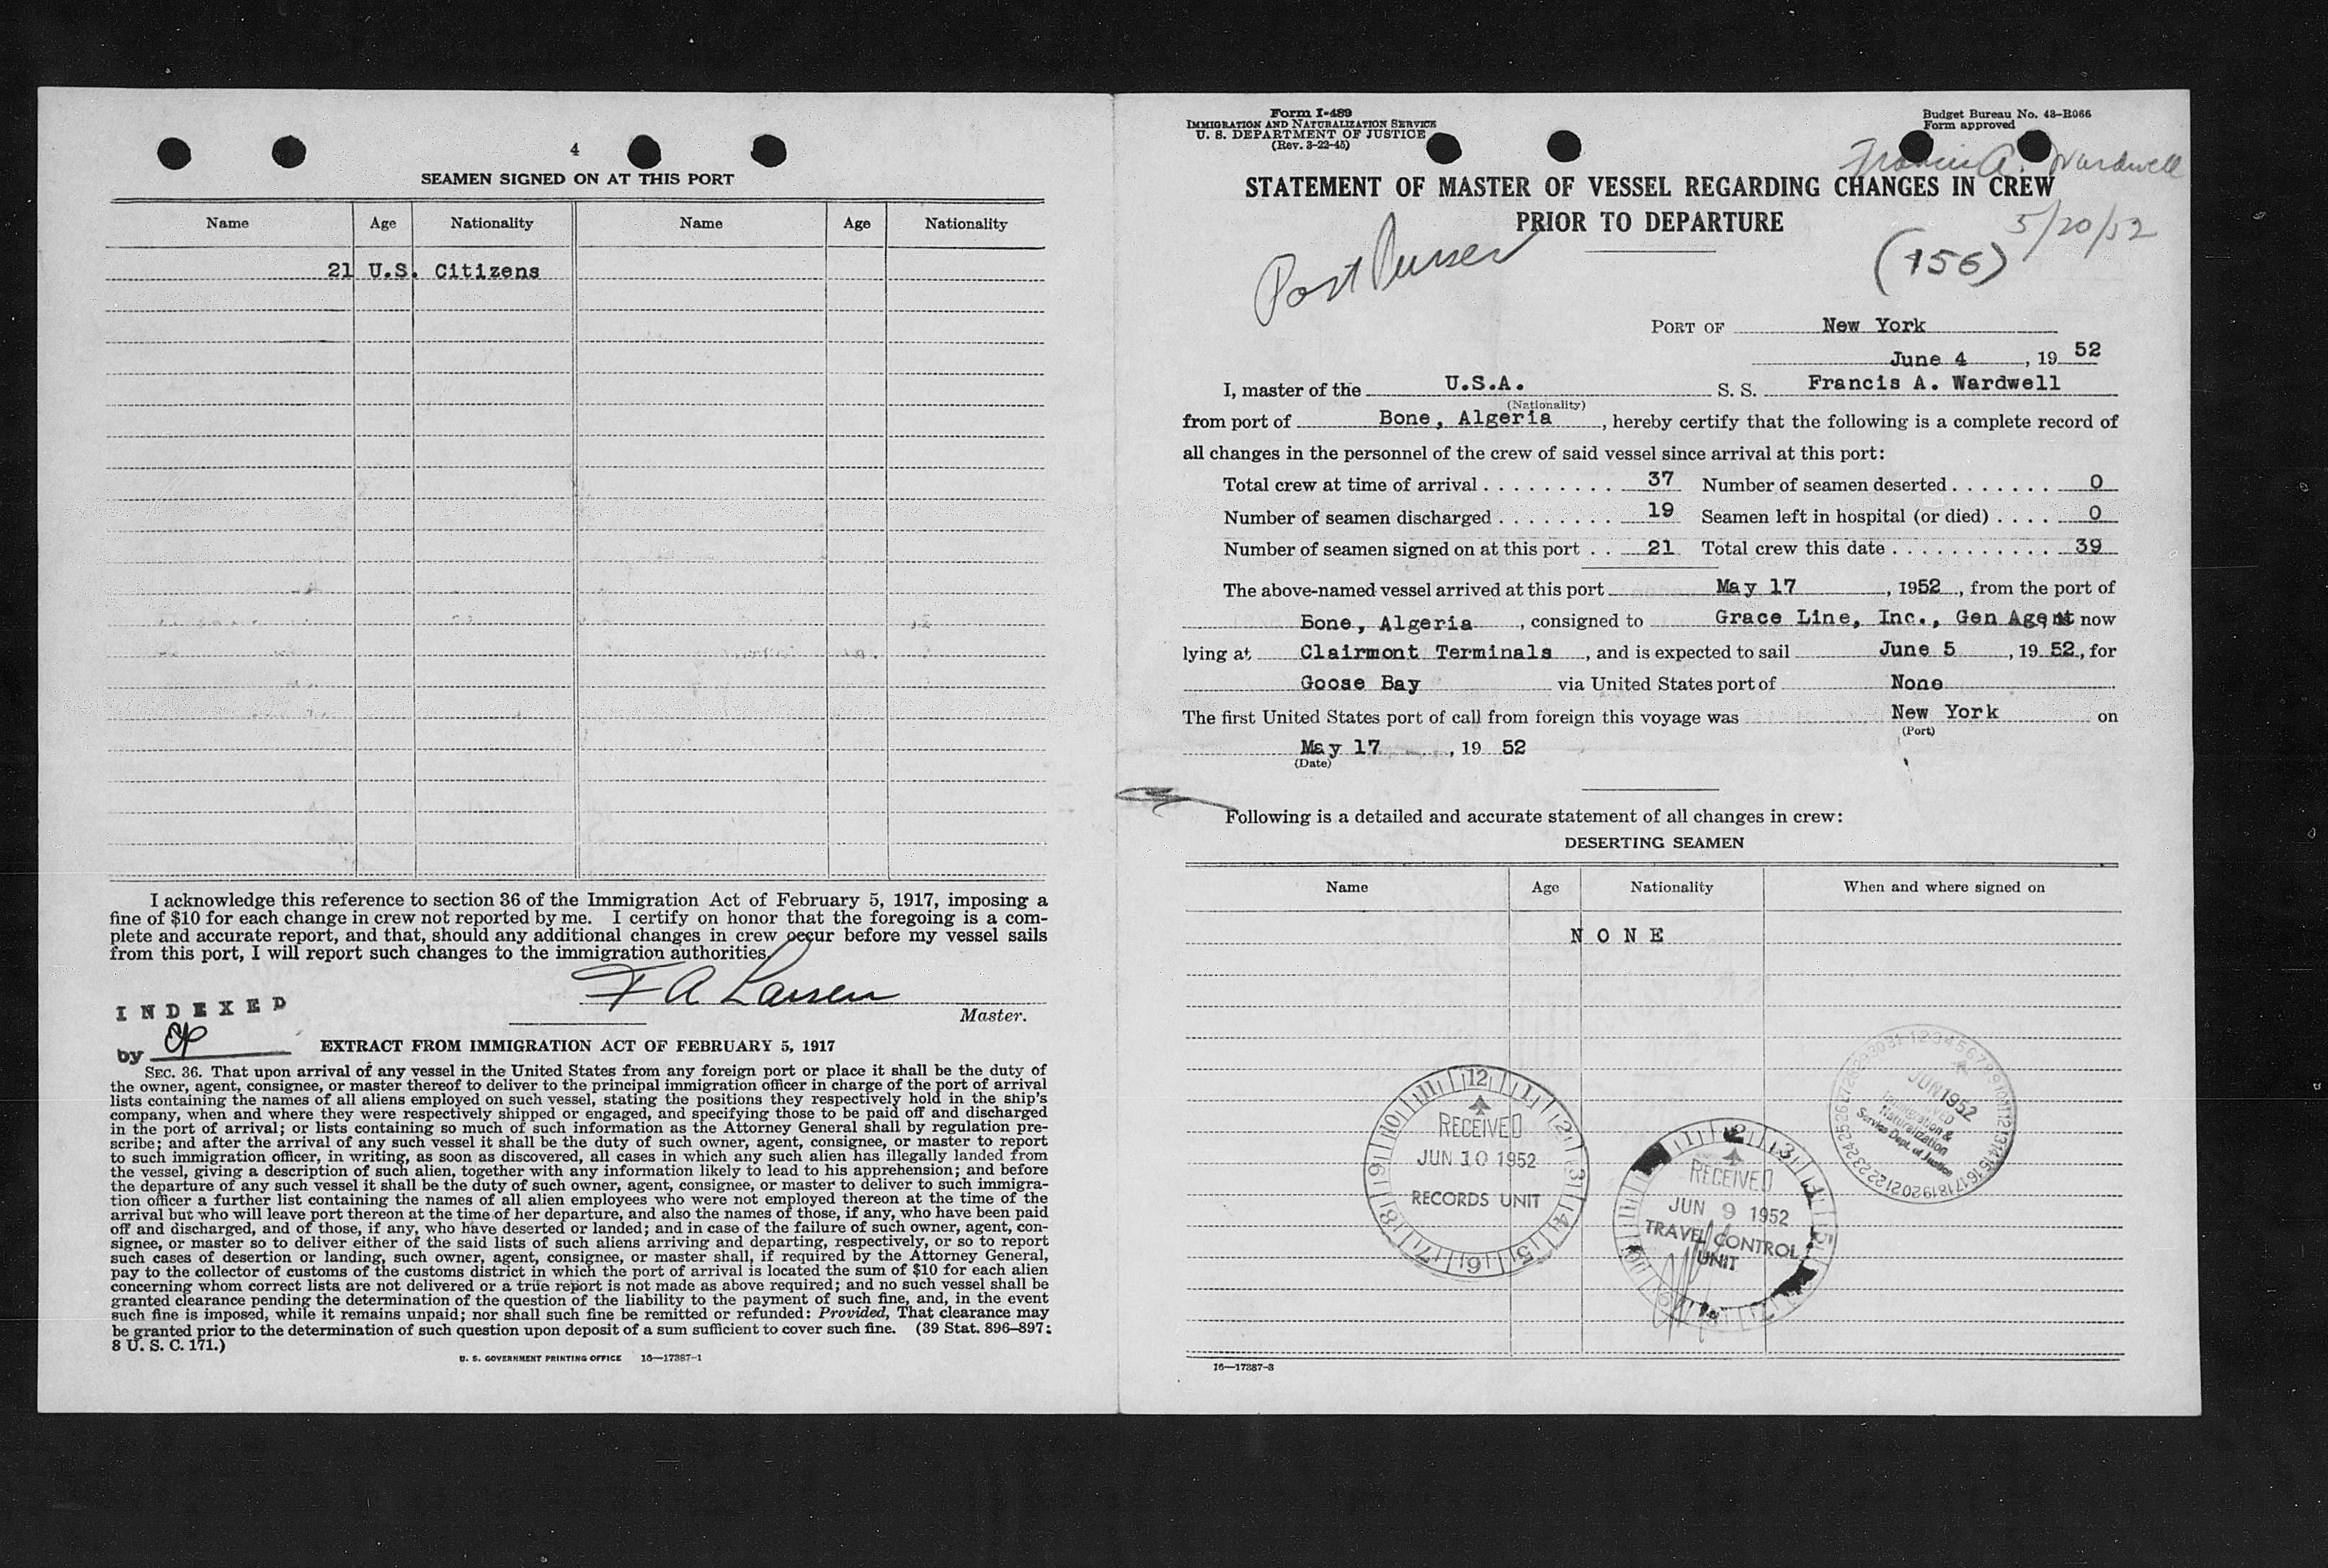 4
SEAMEN SIGNED ON AT THIS PORT
Name Age Nationality Name Age Nationality
21 U.S. Citizens
I acknowledge this reference to section 36 of the Immigration Act of February 5, 1917, imposing a
fine of $10 for each change in crew not reported by me. I certify on honor that the foregoing is a com-
plete and accurate report, and that, should any additional changes in crew occur before my vessel sails
from this port, I will report such changes to the immigration authorities.
F A Larsen
Master.
INDEXED
by
EXTRACT FROM IMMIGRATION ACT OF FEBRUARY 5, 1917
SEC. 36. That upon arrival of any vessel in the United States from any foreign port or place it shall be the duty of
the owner, agent, consignee, or master thereof to deliver to the principal immigration officer in charge of the port of arrival
lists containing the names of all aliens employed on such vessel, stating the positions they respectively hold in the ship's
company, when and where they were respectively shipped or engaged, and specifying those to be paid off and discharged
in the port of arrival; or lists containing so much of such information as the Attorney General shall by regulation pre-
scribe; and after the arrival of any such vessel it shall be the duty of such owner, agent, consignee, or master to report
to such immigration officer, in writing, as soon as discovered, all cases in which any such alien has illegally landed from
the vessel, giving a description of such alien, together with any information likely to lead to his apprehension; and before
the departure of any such vessel it shall be the duty of such owner, agent, consignee, or master to deliver to such immigra-
tion officer a further list containing the names of all alien employees who were not employed thereon at the time of the
arrival but who will leave port thereon at the time of her departure, and also the names of those, if any, who have been paid
off and discharged, and of those, if any, who have deserted or landed; and in case of the failure of such owner, agent, con-
signee, or master so to deliver either of the said lists of such aliens arriving and departing, respectively, or so to report
such cases of desertion or landing, such owner, agent, consignee, or master shall, if required by the Attorney General,
pay to the collector of customs of the customs district in which the port of arrival is located the sum of $10 for each alien
concerning whom correct lists are not delivered or a true report is not made as above required; and no such vessel shall be
granted clearance pending the determination of the question of the liability to the payment of such fine, and, in the event
such fine is imposed, while it remains unpaid; nor shall such fine be remitted or refunded: Provided, That clearance may
be granted prior to the determination of such question upon deposit of a sum sufficient to cover such fine. (39 Stat. 896–897;
8 U. S. C. 171.)
U. S. GOVERNMENT PRINTING OFFICE 16—17387-1
Form I-489
IMMIGRATION AND NATURALIZATION SERVICE
U. S. DEPARTMENT OF JUSTICE
(Rev. 3-22-45)
Budget Bureau No. 43-R066
Form approved
Francis A. Wardwell
STATEMENT OF MASTER OF VESSEL REGARDING CHANGES IN CREW
PRIOR TO DEPARTURE
5/20/52
(156)
Post Purser
PORT OF New York
June 4, 19 52
I, master of the U.S.A. S. S. Francis A. Wardwell
(Nationality)
from port of Bone, Algeria, hereby certify that the following is a complete record of
all changes in the personnel of the crew of said vessel since arrival at this port:
Total crew at time of arrival . . . . . . . . . . 37 Number of seamen deserted . . . . . . . 0
Number of seamen discharged . . . . . . . . 19 Seamen left in hospital (or died) . . . . 0
Number of seamen signed on at this port . . 21 Total crew this date . . . . . . . . . . . . 39
The above-named vessel arrived at this port May 17, 1952, from the port of
Bone, Algeria, consigned to Grace Line, Inc., Gen Agent now
lying at Clairmont Terminals, and is expected to sail June 5, 19 52, for
Goose Bay via United States port of None
The first United States port of call from foreign this voyage was New York on
(Port)
May 17, 19 52
(Date)
Following is a detailed and accurate statement of all changes in crew:
DESERTING SEAMEN
Name Age Nationality When and where signed on
NONE
12 1 2 3 4 5 6 7 8 9 10 11
RECEIVED
JUN 10 1952
RECORDS UNIT
RECEIVED
JUN 9 1952
TRAVEL CONTROL
UNIT
JUN 1952
Immigration &
Naturalization
Service Dept. of Justice
16—17387-3